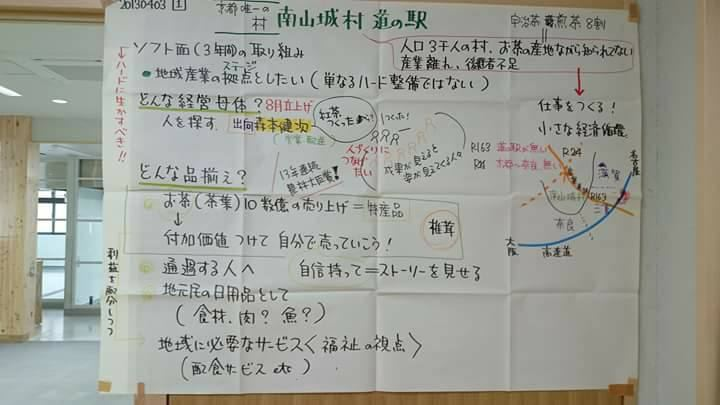 20130403 1
京都唯一の村
南山城村 道の駅
宇治茶 煎茶 8割
人口3千人の村、お茶の産地ながら知られてない
産業離れ、後継者不足
ソフト面(3年間)の取り組み
ステージ
・地域産業の拠点としたい(単なるハード整備ではない)
←ハードに生かすべき!!
どんな経営母体? 8月立上げ
人を探す 出向 森本健次
紅茶つくったから?
つくった!
人づくりにつなげたい
成果が見えると姿が見えてくる人。
R163 道の駅が無い
仕事をつくる!
小さな経済循環
R24
名古屋
滋賀
南山城村
R163
奈良
大阪
高速道
どんな品揃え?
13年連続農林大臣賞!
お茶(茶葉)10数億の売り上げ=特産品
椎茸
↓
付加価値つけて自分で売っていこう!
通過する人へ 自信持って=ストーリーを見せる
地元民の日用品として
(食材、肉?魚?)
地域に必要なサービス〈福祉の視点〉
(配食サービス etc)
利益を配分しつつ